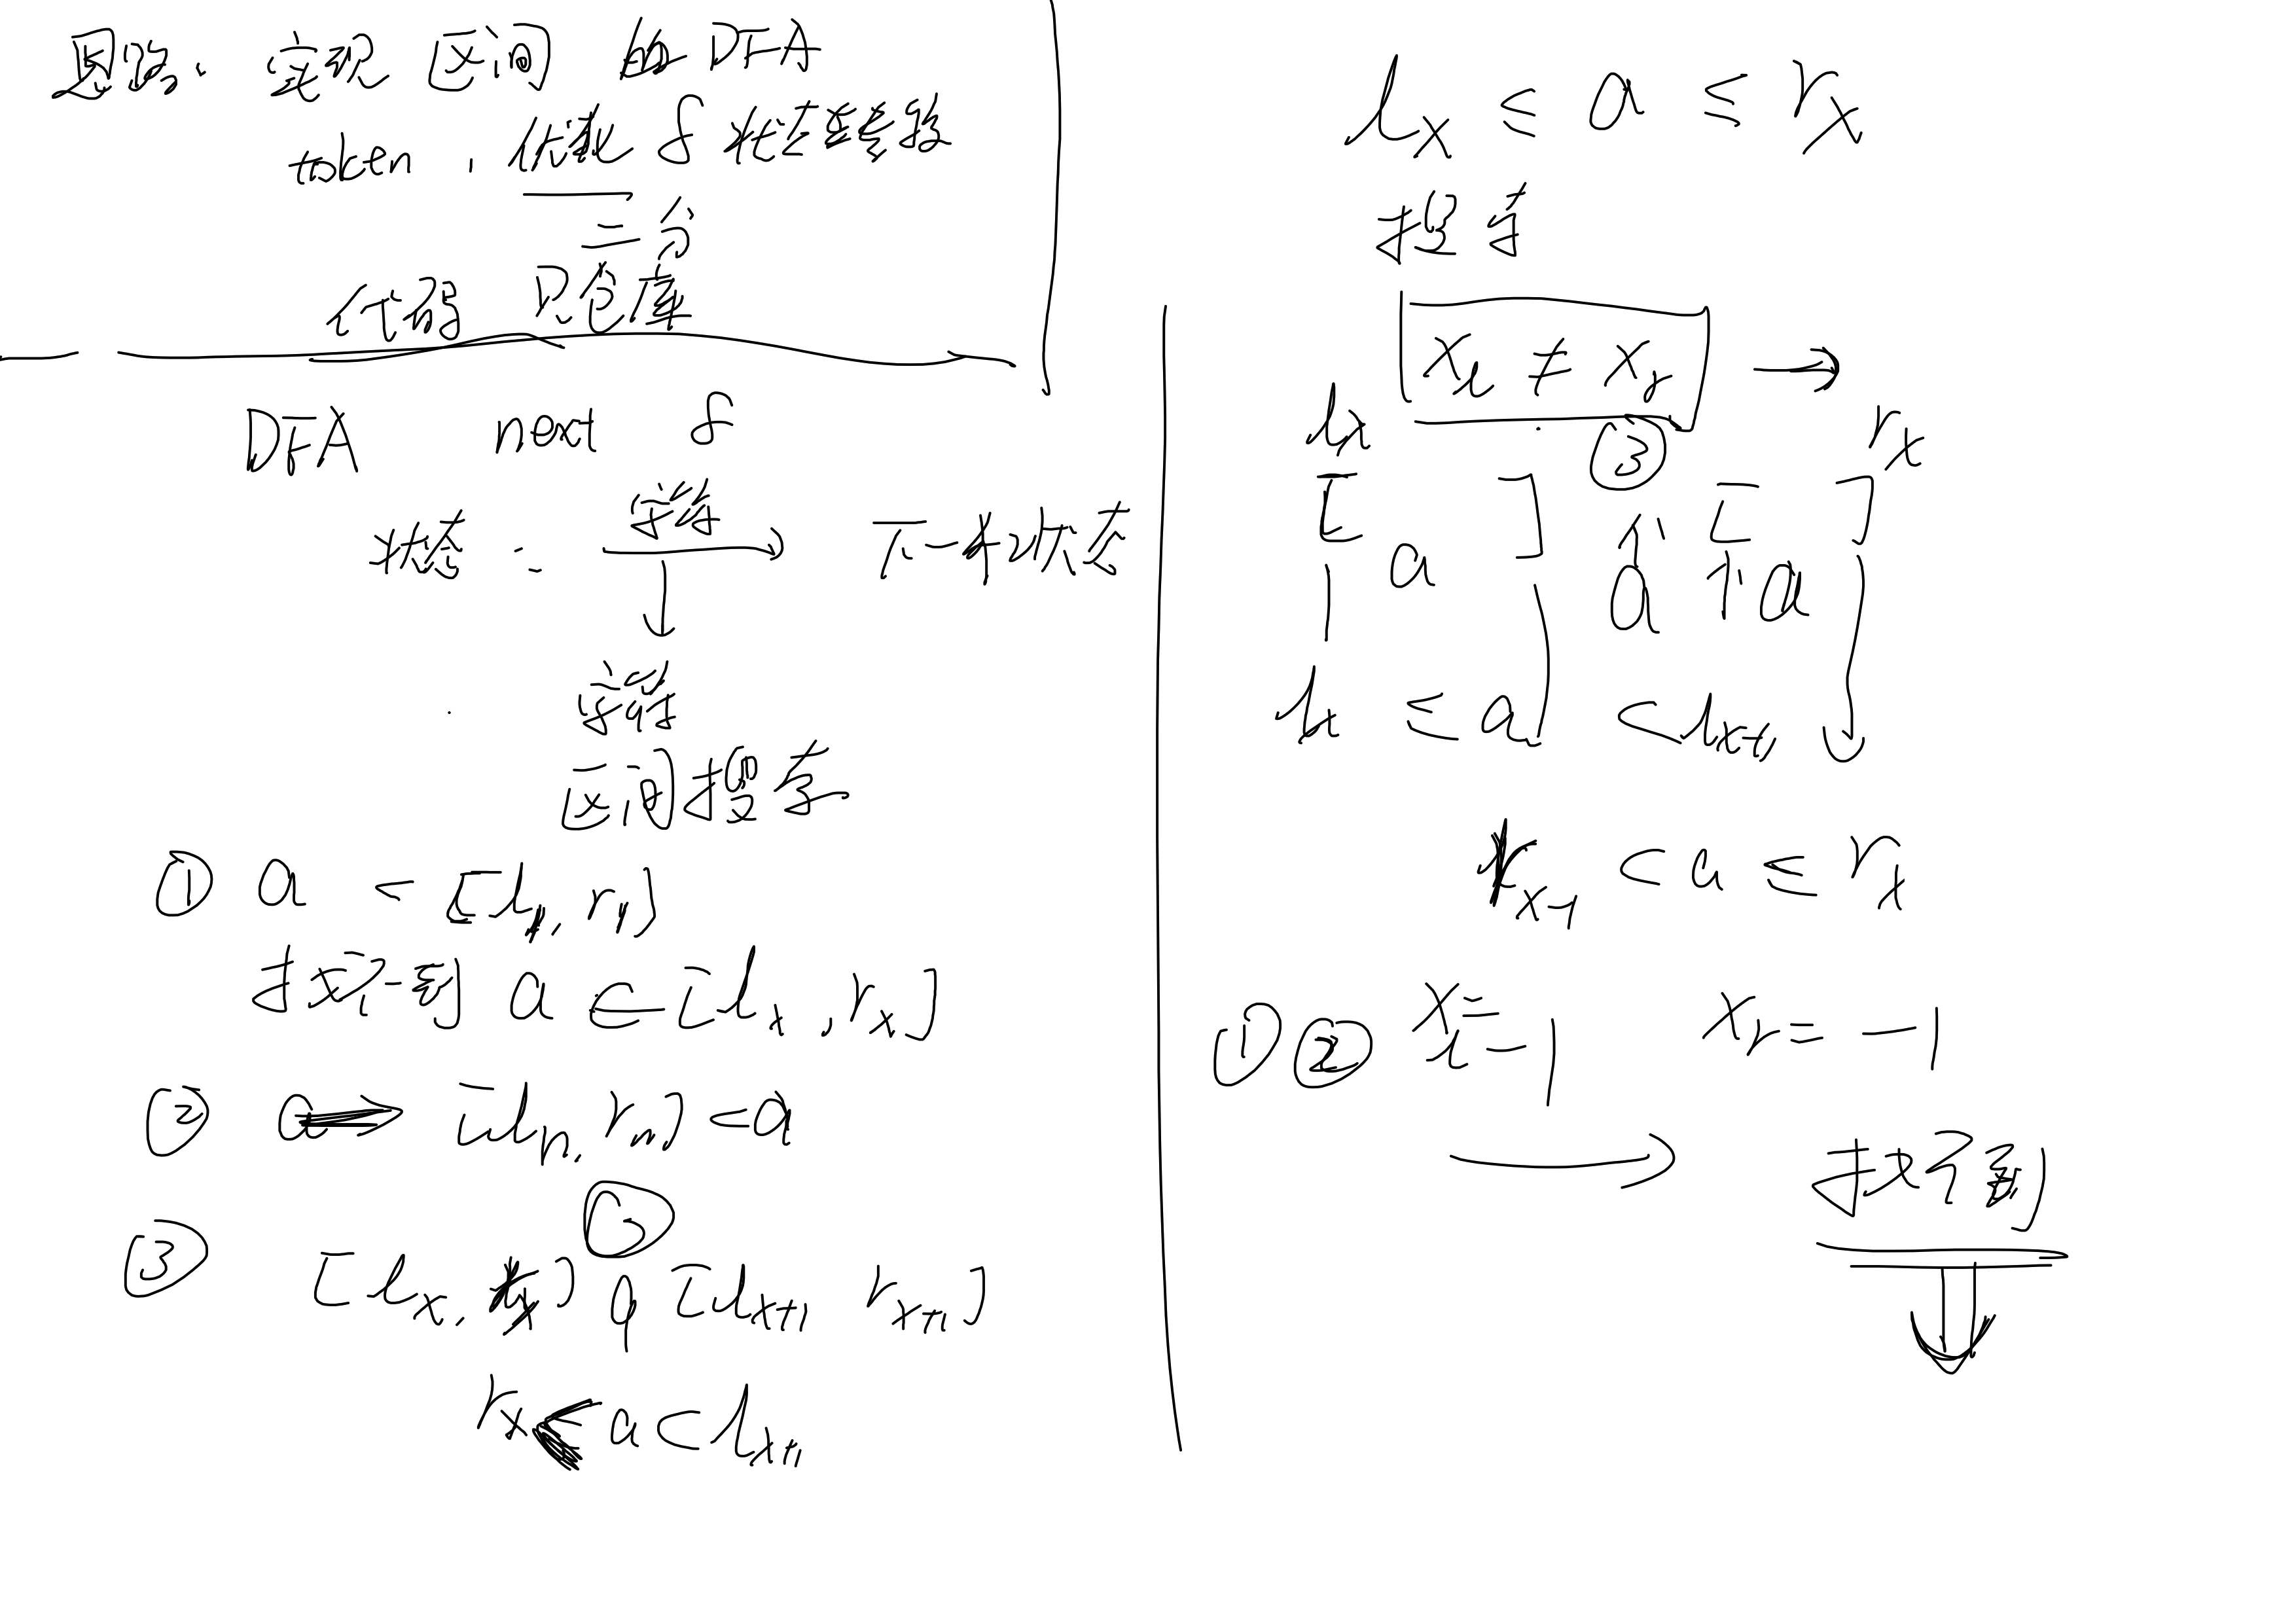 思路. 实现 区间 的 DFA
token, 优化 δ 状态转移
二分
代码 只包括
DFA next δ
状态: 字符 → 下一个状态
↓
字符
区间搜索
① a < [l₁, r₁]
找不到 a ∈ [lₓ, rₓ]
② [lₙ, rₙ] < a
③ [lₓ, rₓ] a [lₓ₊₁ rₓ₊₁]
rₓ < a < lₓ₊₁
lₓ ≤ a ≤ rₓ
搜索
xₗ ≠ xᵣ →
lₓ ③ rₓ
[ ] [ ]
a a a
lₓ ≤ a < lₓ₊₁
rₓ₋₁ < a ≤ rₓ
①② xₗ = -1 xᵣ = -1
→ 找不到